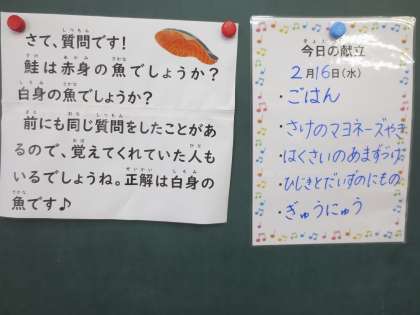 さて、質問です!
鮭は赤身の魚でしょうか?
白身の魚でしょうか?
前にも同じ質問をしたことがあ
るので、覚えてくれていた人も
いるでしょうね。正解は白身の
魚です♪
今日の献立
2月16日(水)
・ごはん
・さけのマヨネーズやき
・はくさいのあまずづけ
・ひじきとだいずのにもの
・ぎゅうにゅう